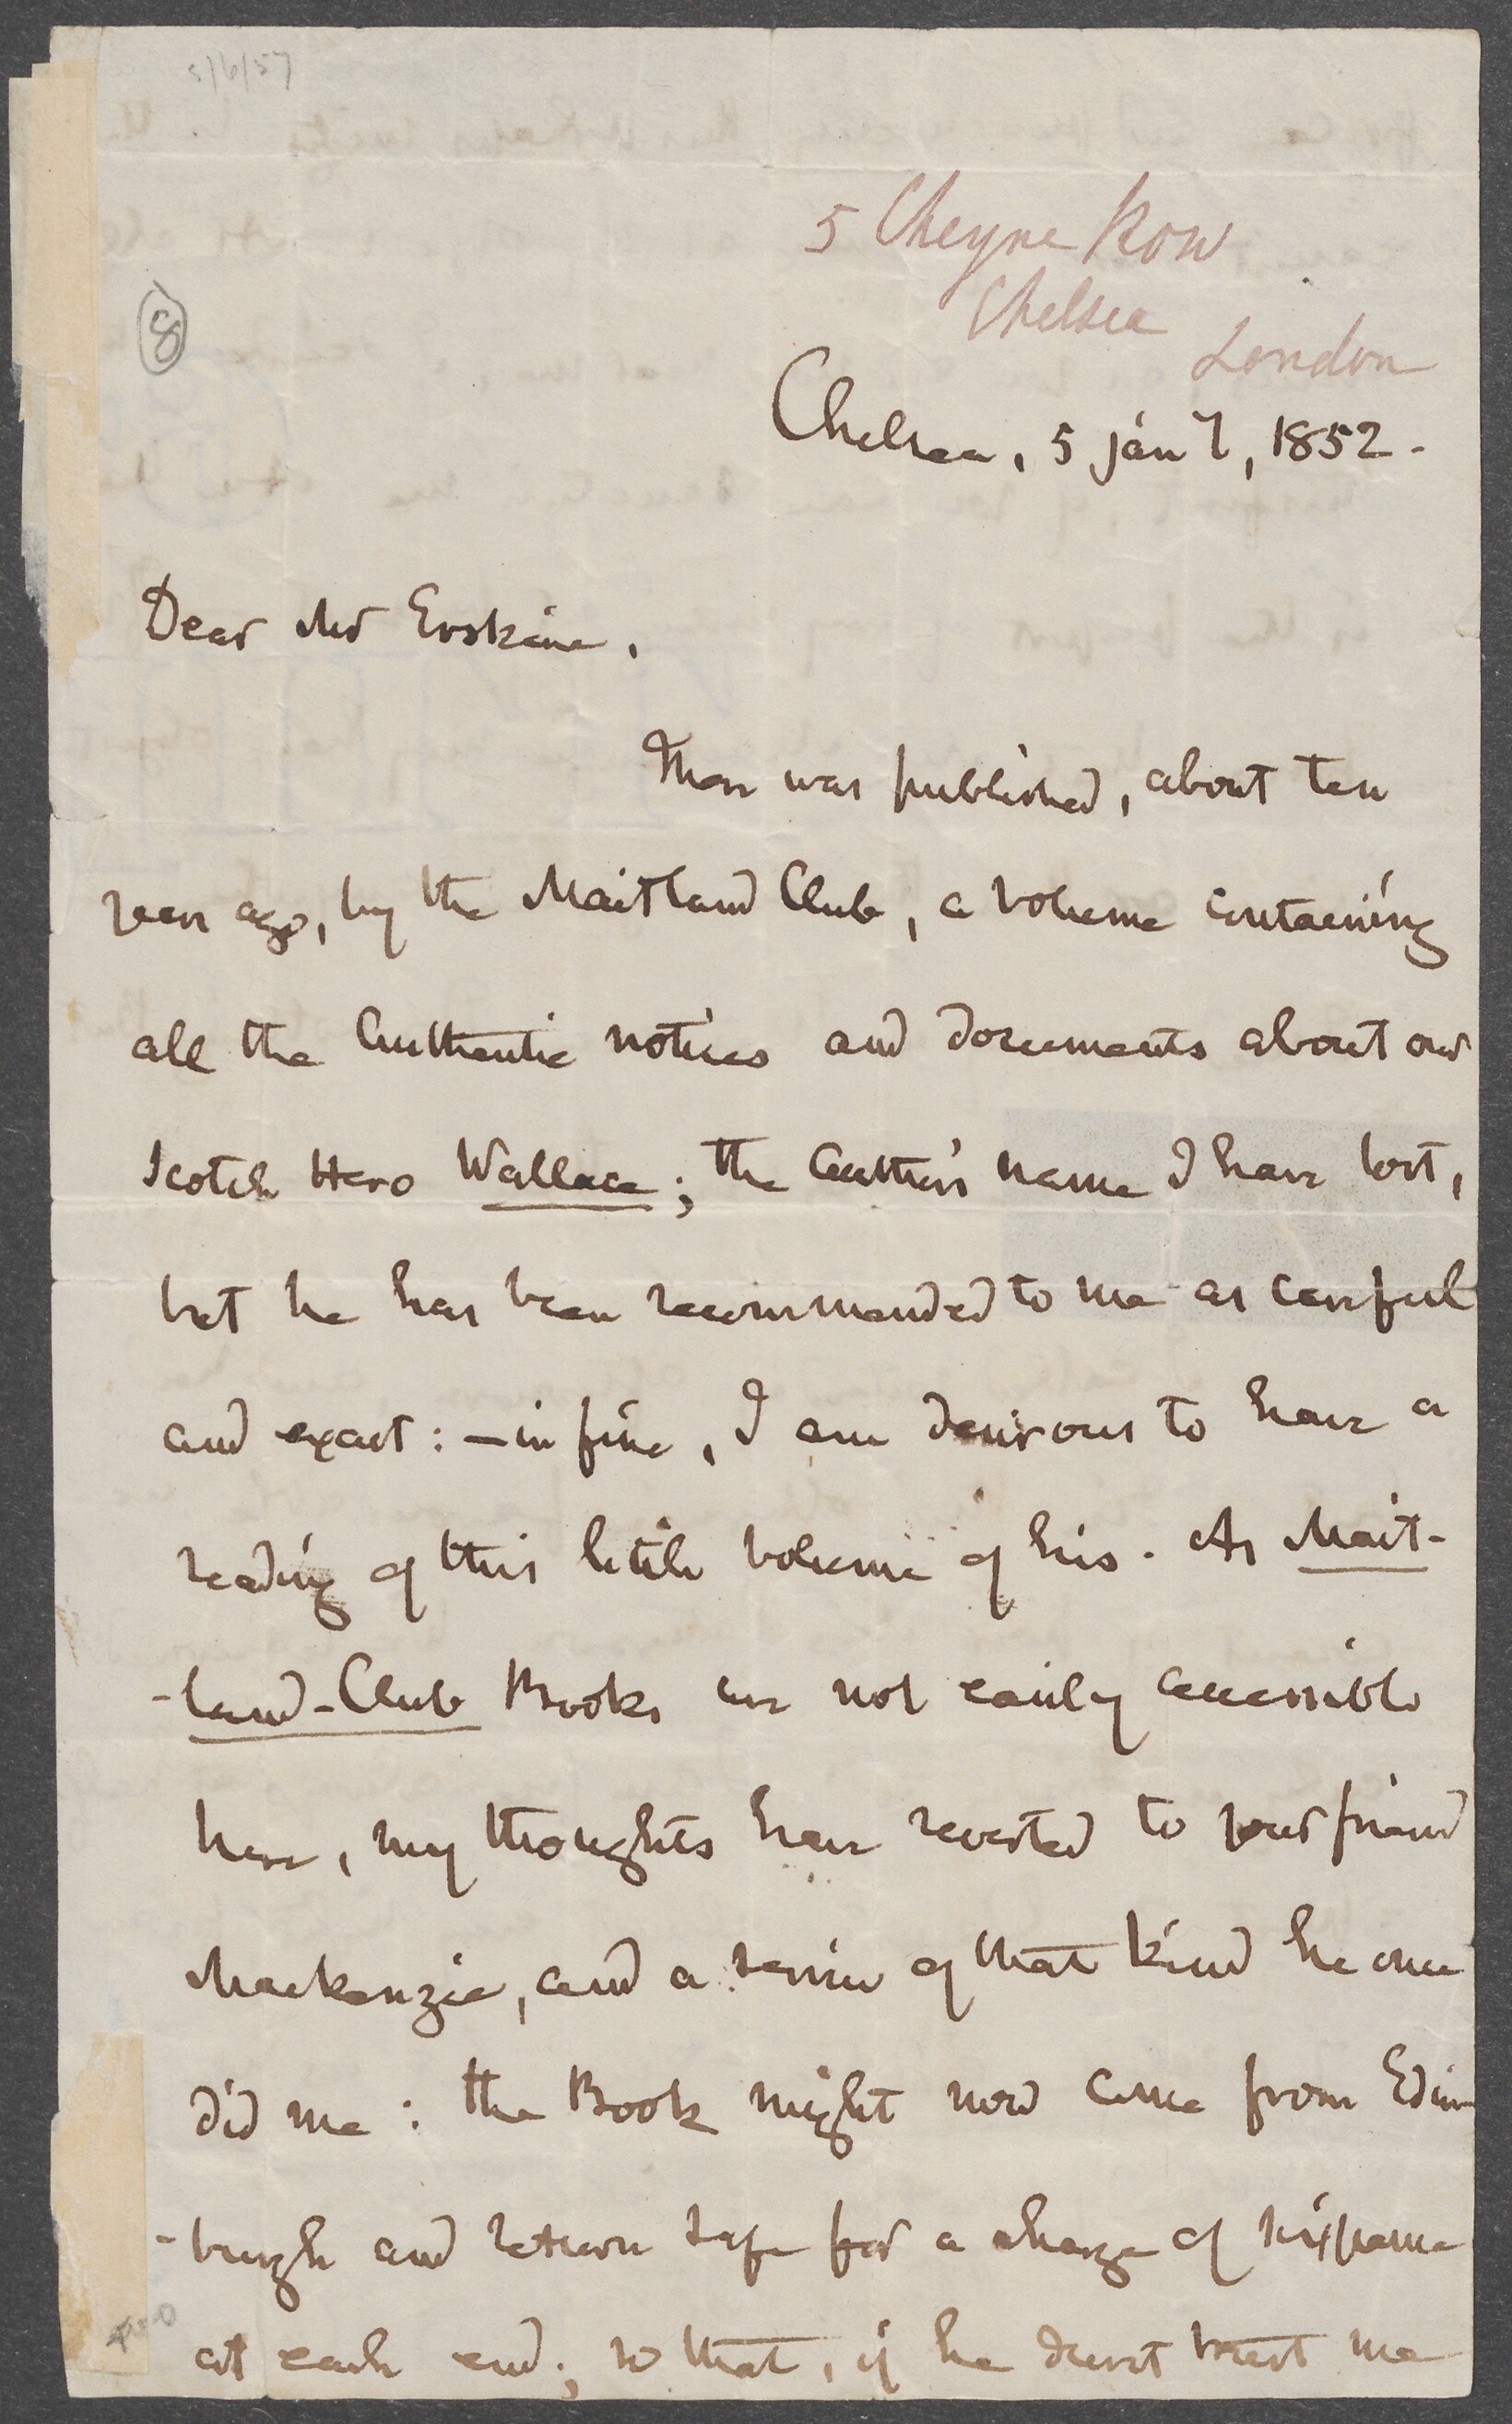 5/6/57
5 Cheyne Row
Chelsea
London
8
Chelsea, 5 jany, 1852.
Dear Mr Erskine,
There was published, about ten
years ago, by the Maitland Club, a volume containing
all the authentic notices and documents about our
Scotch Hero Wallace; the author's name I have lost,
but he has been recommended to me as careful
and exact: — in fine, I am desirous to have a
reading of this little volume of his. As Mait-
-land-Club Books are not easily accessible
here, my thoughts have reverted to your friend
Mackenzie, and a service of that kind he once
did me: the Book might now come from Edin-
-burgh and return safe for a charge of sixpence
at each end; so that, if he durst trust me